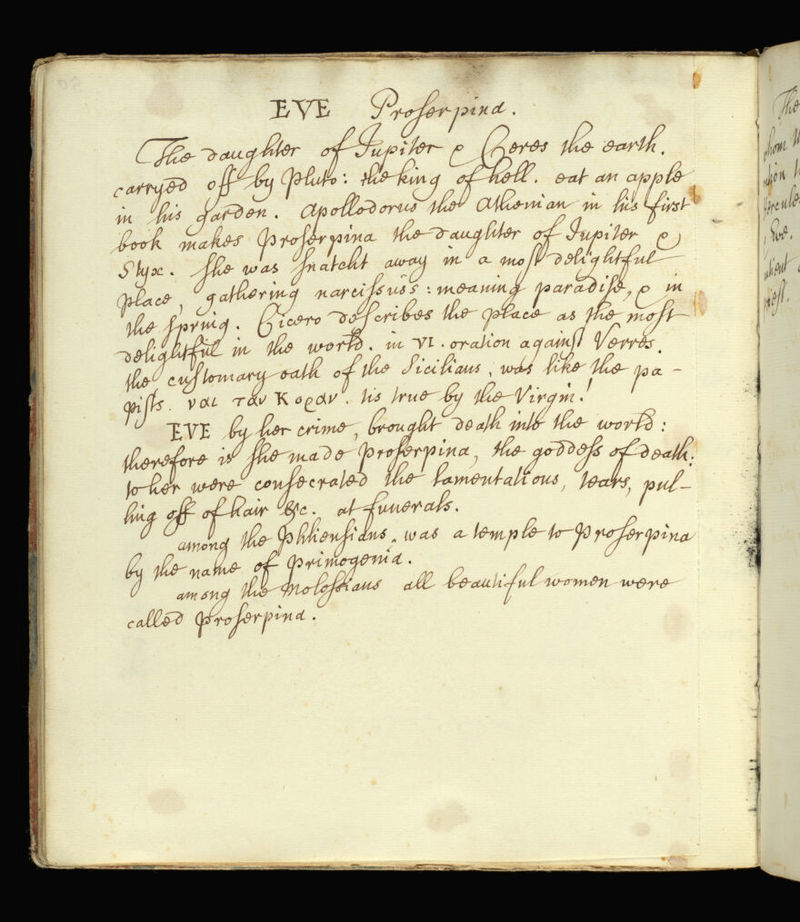 EVE Proserpina.
The daughter of Jupiter & Ceres the earth.
carryed off by Pluto: the king of hell. eat an apple
in his garden. Apollodorus the Athenian in his first
book makes Proserpina the daughter of Jupiter &
Styx. she was snatcht away in a most delightful
place, gathering narcissus's: meaning paradise, & in
the spring. Cicero describes the place as the most
delightful in the world. in VI. oration against Verres.
the customary oath of the Sicilians, was like the pa-
pists. ναι ταν Κοραν. tis true by the Virgin!
EVE by her crime, brought death into the world:
therefore is she made Proserpina, the goddess of death:
to her were consecrated the lamentations, tears, pul-
ling off of hair &c. at funerals.
among the Phliensians, was a temple to Proserpina
by the name of Primogenia.
among the Molossians all beautiful women were
called Proserpina.
The
whom
Hercules
Eve.